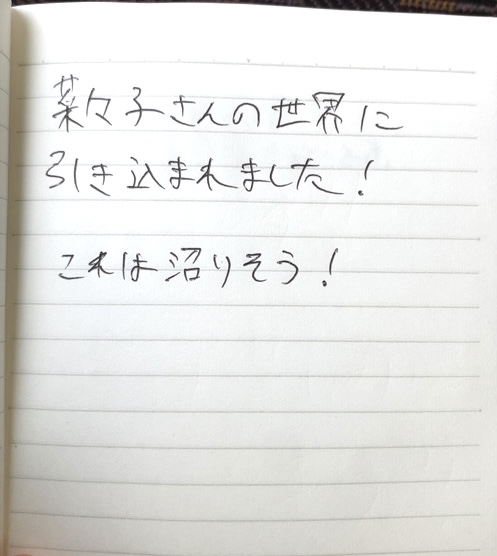 菜々子さんの世界に
引き込まれました！
これは沼りそう！